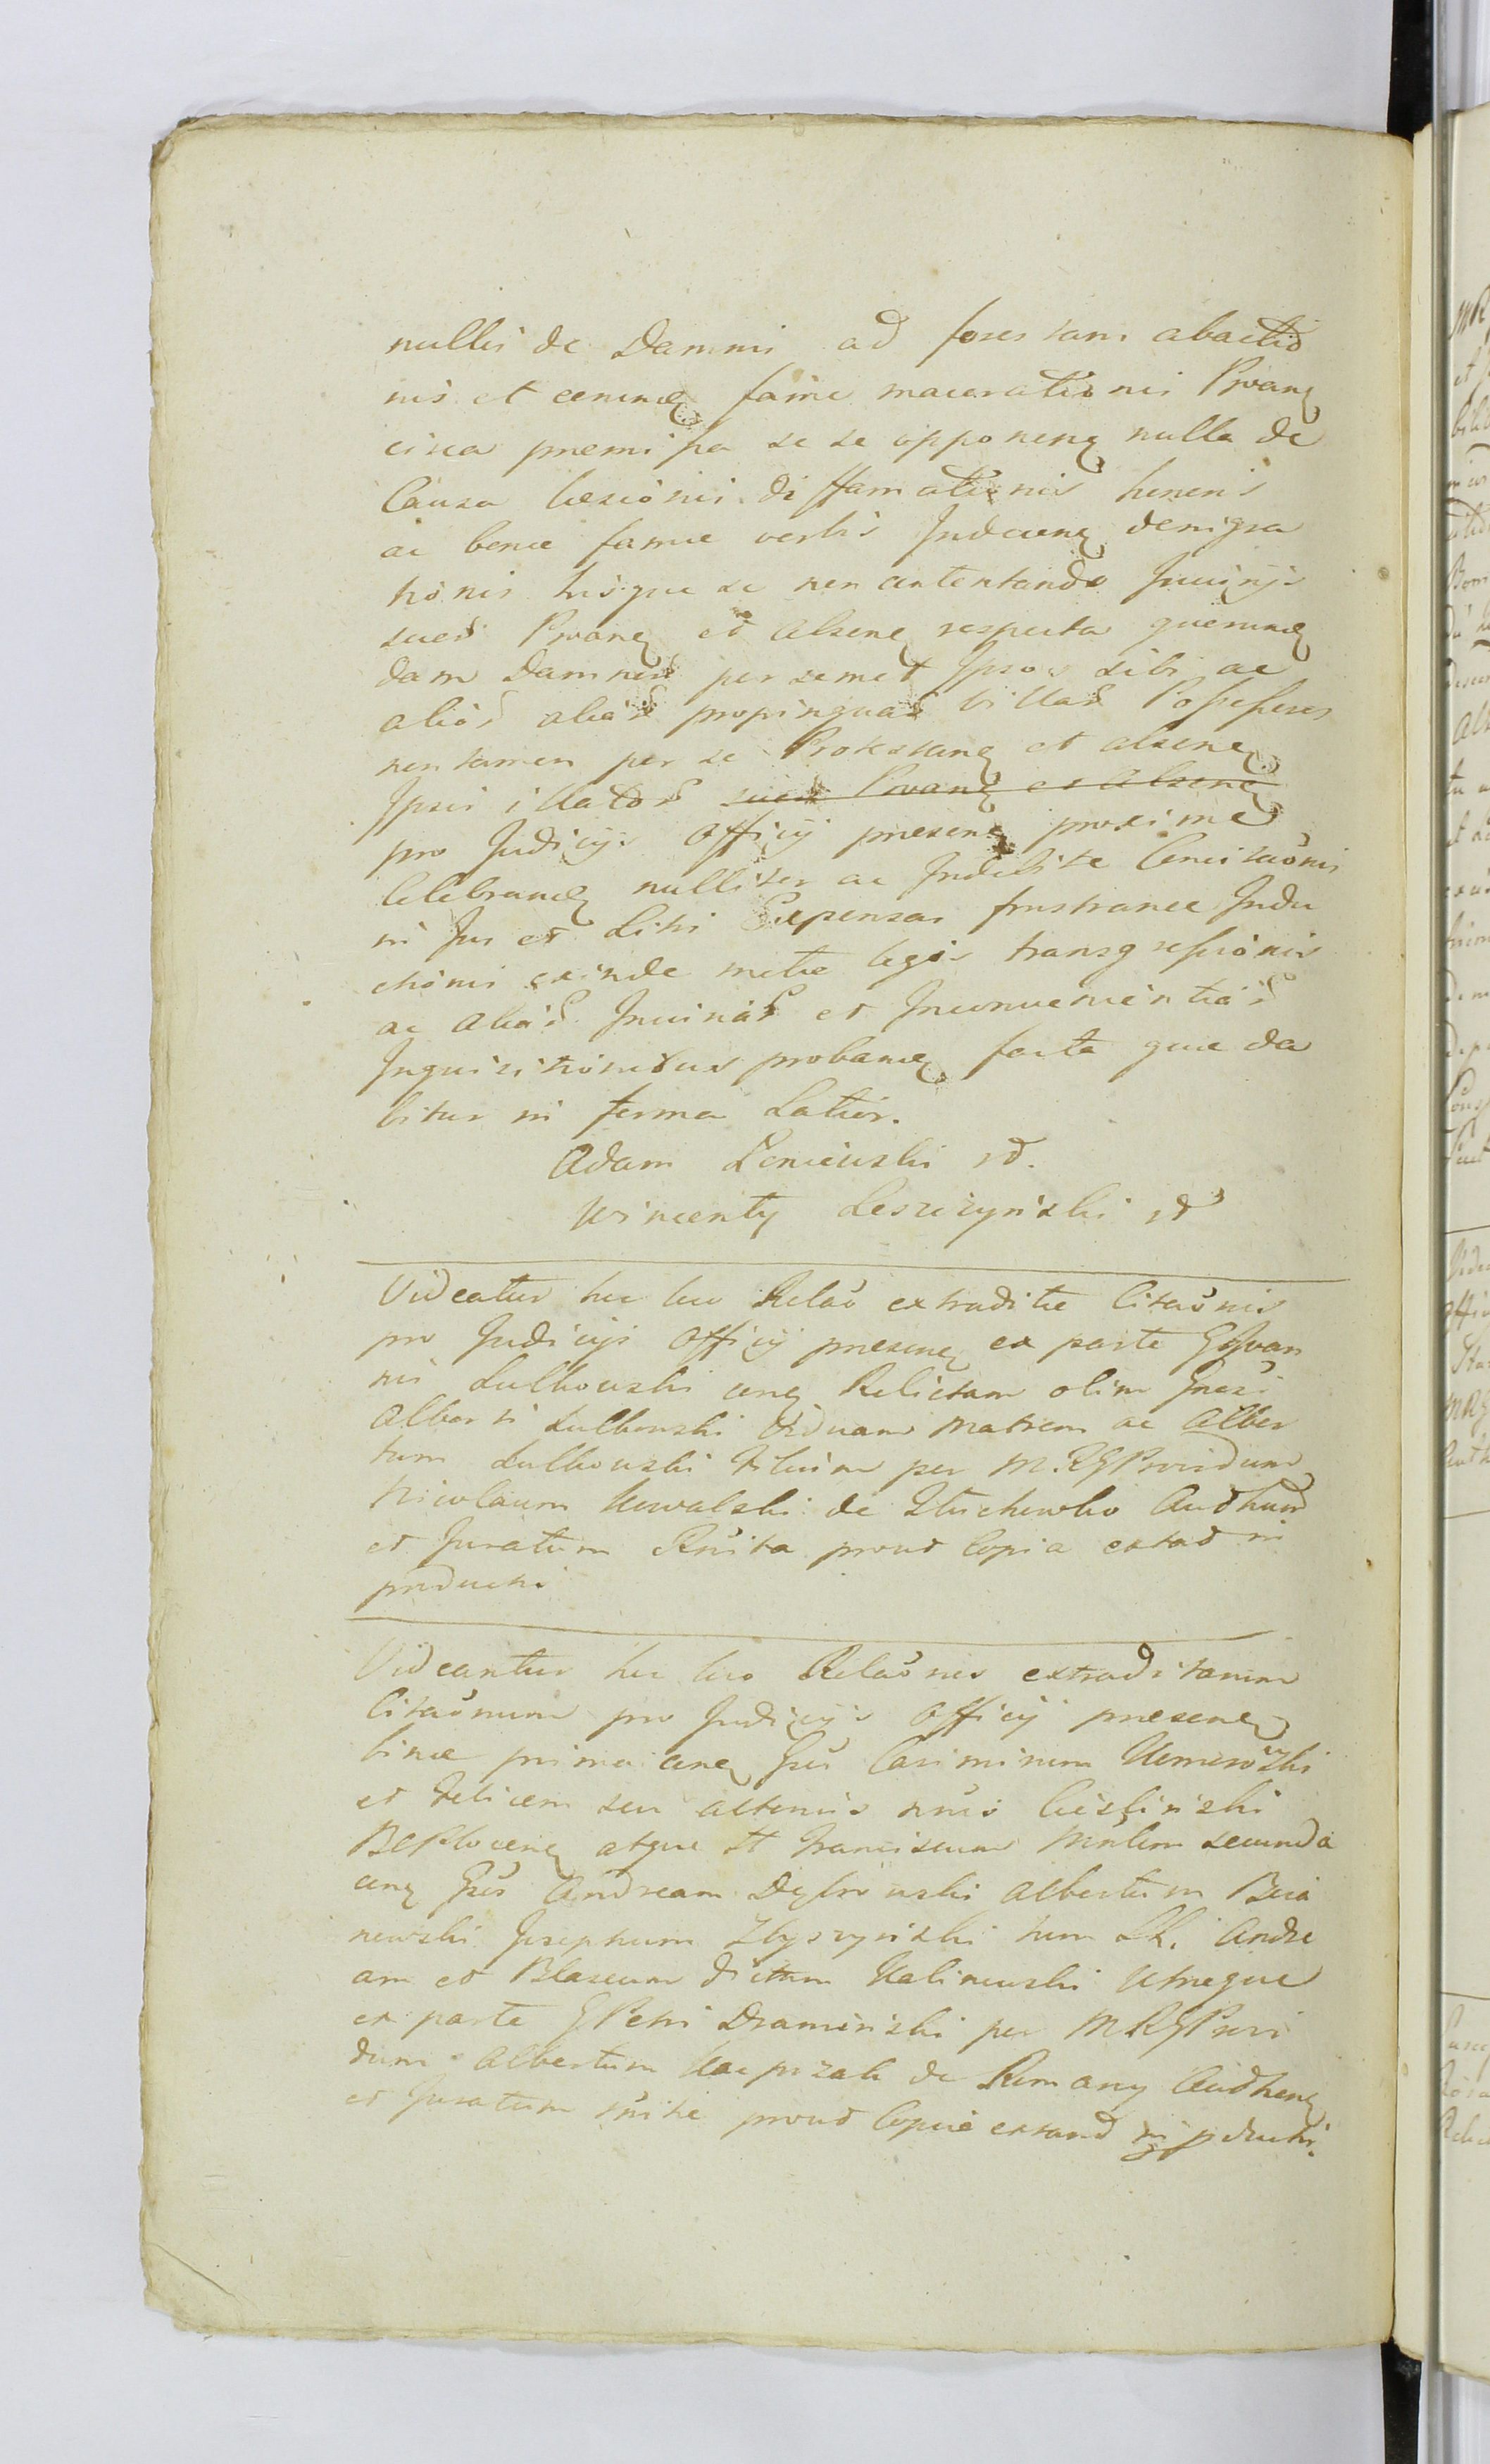 nullis de Damnis ad forestam abactio
nis et eorunq fame macerationis Pvang
circa premissa se se opponeng nulla de
Causa lesionis diffamationis honeris
ac bone fame verbis Indecenq denigra
tionis hisque se non contentando Iniurijs
sues Pvanq et alsenq respectu quorunq
dam Damnis per semet Ipsos sibi ac
aliis alias propinquas villas Possessores
non tamen per se Protestanq et alsenq
Ipsis illatos suos Pvanq et alsenq
pro Judicijs Officij presenq proxime
Celebranq nulliter ac Indebite Concitaonis
in Jus et Litis Expensas frustranee Indu
ctionis exinde mete legis transgressionis
ac alias Iniurias et Inconvenientias
Inquisitionibus probanq facta que da
bitur in forma Latior.
Adam Leniewski rd.
Wincenty Leszczynski rd
Videatur hic loco Relao extradite Citaonis
pro Judicijs Officij presenq ex parte GJoan
nis Lulkowski cenq Relictam olim Gnosi
Alberti Lulkowski Viduam Matrem ac Alber
tum Lulkowski Filium per M. RG Providum
Nicolaum Kowalski de Stuchowko Authum
et Juratum Rnita prout Copia extat in
producti
Videantur hic loco Relaones extraditarum
Citaonum pro Judicijs Officij presenq
bine prima cenq Gsos Casimirum
et Felicem seu alterius nnis Cieslinski
atque et Franciscum secunda
cenq Gsos Andream Dybowski Albertum Bara
newski Josephum Zbyszynski tum LL. Andre
am et Blaseum dictum Kalinowski Utreque
ex parte GPetri Draminski per MRGProvi
dum Albertum Kacprzak de Romany Authenq
et Juratum rnite prout Copie extand in pducti.